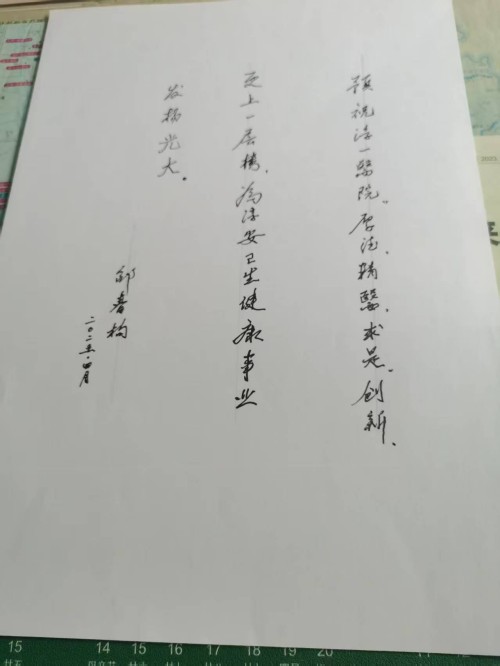 预祝淳一醫院。厚德、精醫、求是、创新、
更上一层楼，為淳安卫生健康事业
发扬光大。
邱春构
二〇二五.四月
15
14 15 16 17 18 19 20
11 12